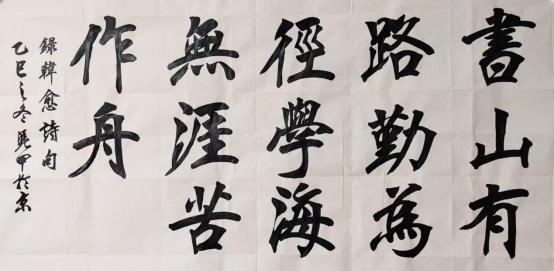 書山有
路勤為
徑學海
無涯苦
作舟
錄韓愈詩句
乙巳之冬
於京